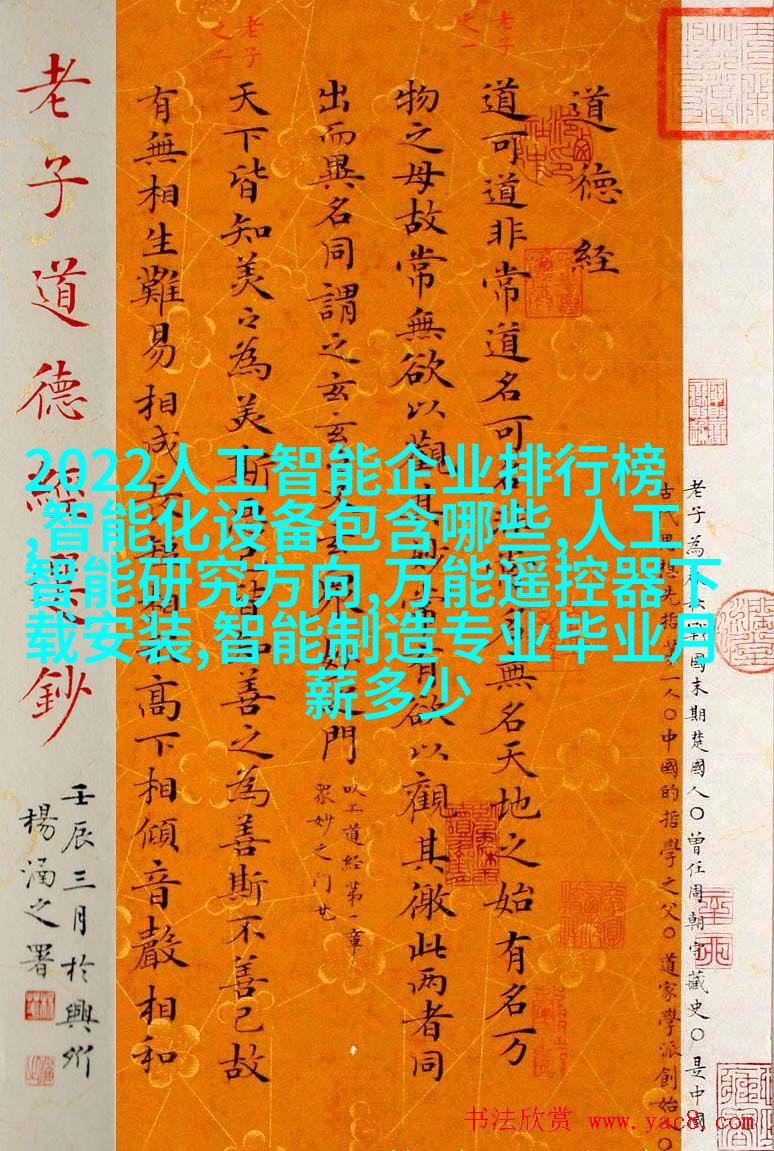 老子
之一
老子
之二
道德經
道可道非常道名可名非常名無名天地之始有名万
物之母故常無欲以觀其妙常有欲以觀其徼此两者同
出而異名同謂之玄玄之又玄眾妙之門
以上道經第一章
天下皆知美之為美斯惡已皆知善之為善斯不善已故
有無相生難易相成長短相形高下相傾音聲相和
老子為春秋戰國末期楚國人〇曾任周朝守藏史〇是中國
古代思想先指第一人〇中國的哲學之父〇道家學派創始〇
老子道德經鈔
壬辰三月於興
楊涵之署
2022人工智能企业排行榜
,智能化设备包含哪些,人工
智能研究方向,万能遥控器下
载安装,智能制造专业毕业月
薪多少
书法欣赏 www.yac8.com